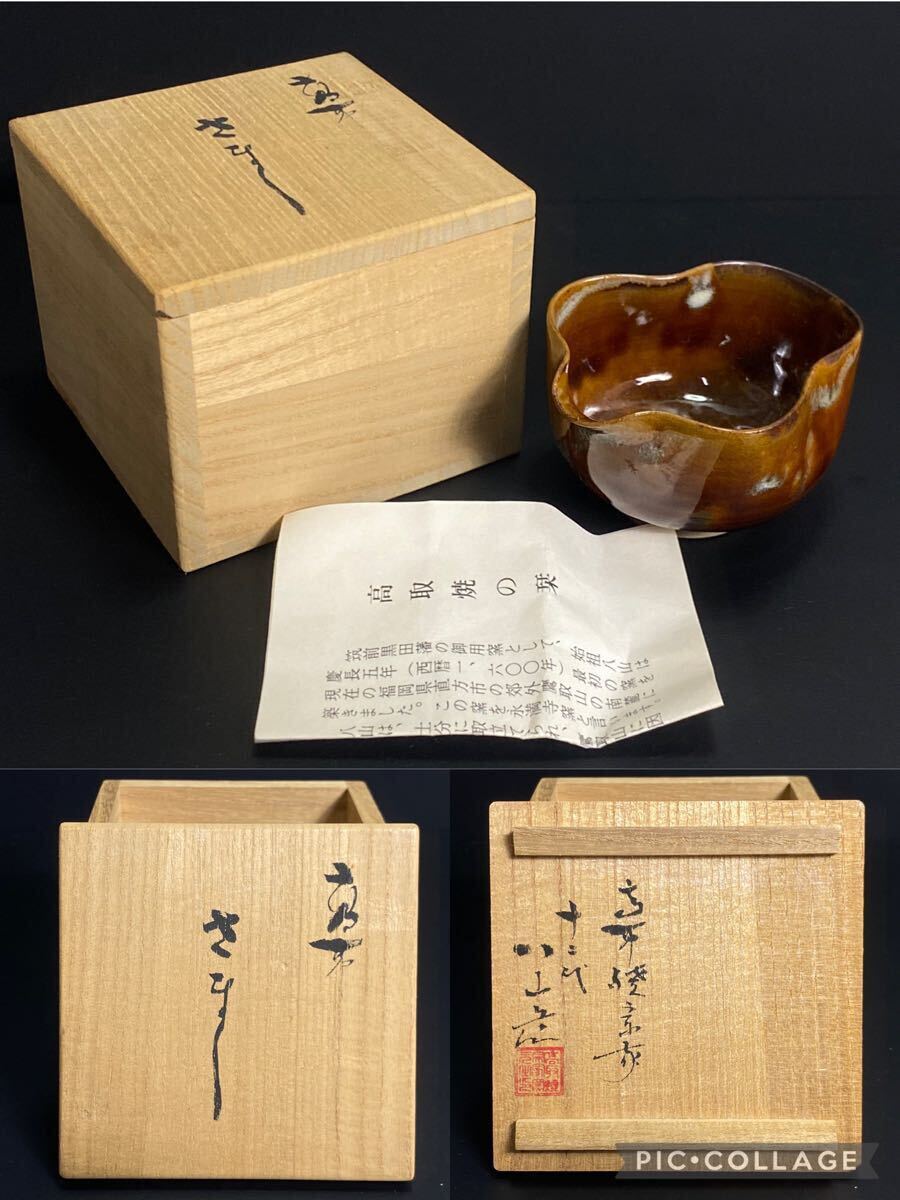 高取
さまし
高取焼の栞
始祖八山は
筑前黒田藩の御用窯として、
慶長五年(西暦一、六〇〇年)最初の窯を
現在の福岡県直方市の郊外鷹取山の南麓に
築きました。この窯を永満寺窯と言います。
八山は、十分に取立てられ、鷹取山に因
高取
さまし
高取焼宗家
十二代
八山造
PIC•COLLAGE